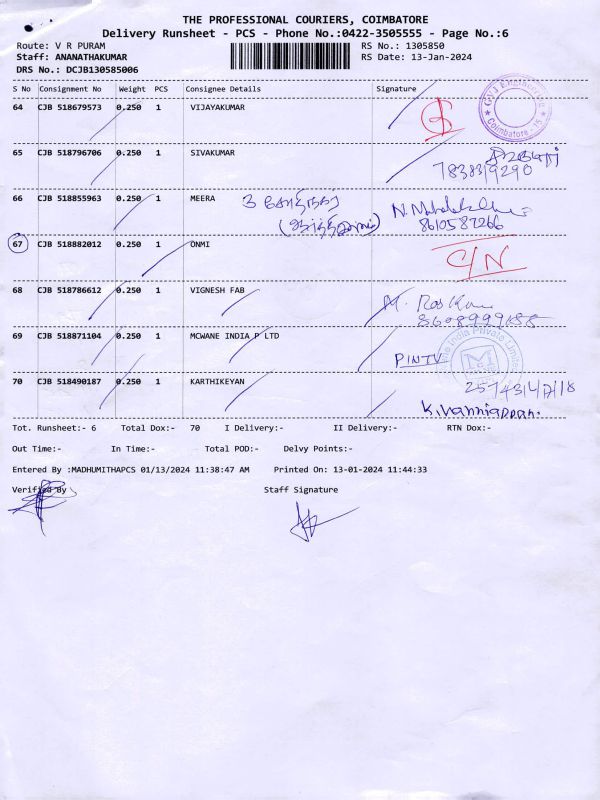 THE PROFESSIONAL COURIERS, COIMBATORE
Delivery Runsheet - PCS - Phone No.:0422-3505555 - Page No.:6
Route: V R PURAM
RS No.: 1305850
Staff: ANANATHAKUMAR
RS Date: 13-Jan-2024
DRS No.: DCJB130585006
S No Consignment No Weight PCS Consignee Details Signature
64 CJB 518679573 0.250 1 VIJAYAKUMAR
Engineering
Coimbatore - 15
65 CJB 518796706 0.250 1 SIVAKUMAR
7838319290
66 CJB 518855963 0.250 1 MEERA
8610587266
67 CJB 518882012 0.250 1 ONMI
C/N
68 CJB 518786612 0.250 1 VIGNESH FAB
M.
8608999188
69 CJB 518871104 0.250 1 MCWANE INDIA P LTD
India Private Limited
70 CJB 518490187 0.250 1 KARTHIKEYAN
Tot. Runsheet:- 6 Total Dox:- 70 I Delivery:- II Delivery:- RTN Dox:-
Out Time:- In Time:- Total POD:- Delvy Points:-
Entered By :MADHUMITHAPCS 01/13/2024 11:38:47 AM Printed On: 13-01-2024 11:44:33
Verified By Staff Signature